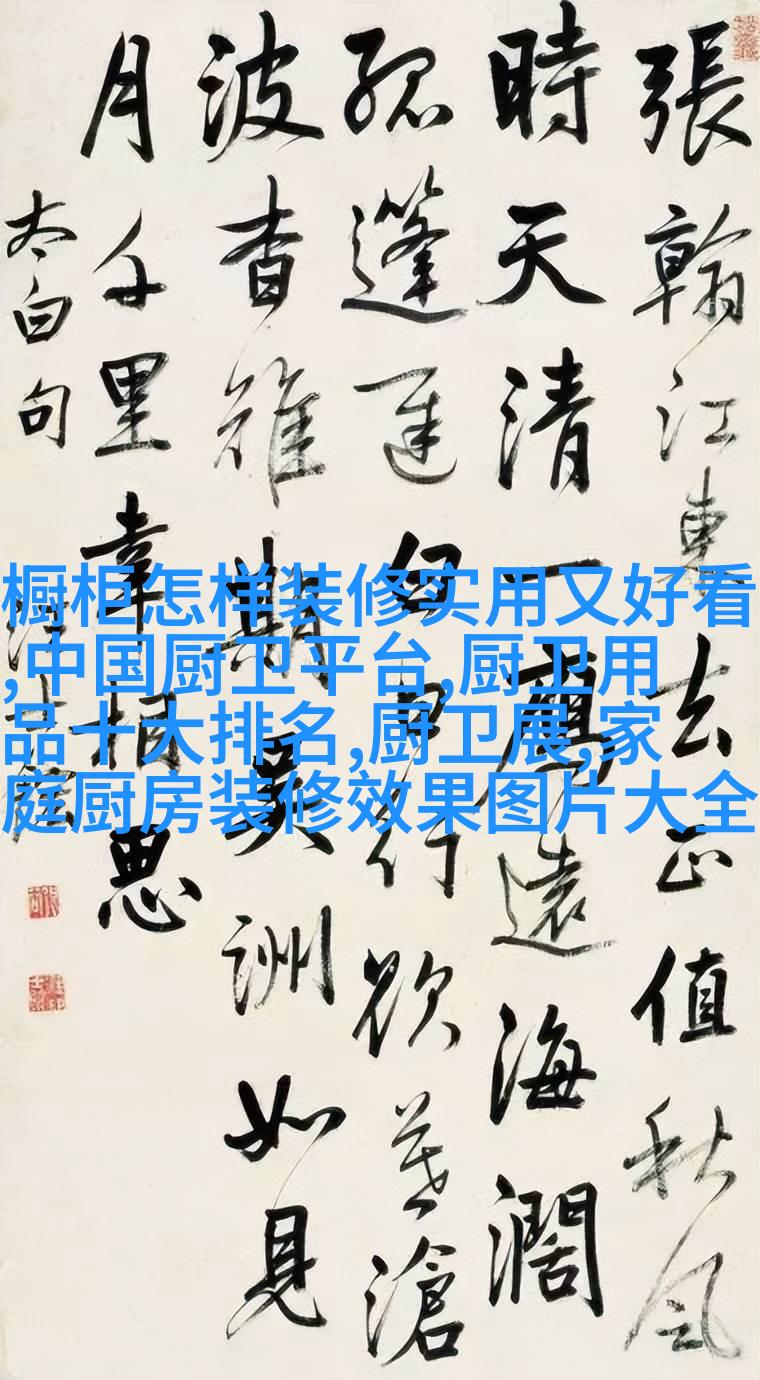 張翰江東去正值秋風
時天清一鴈遠海濶
孤蓬遲白日行欲暮滄
波杳難期吳洲如見
月千里幸相思
太白句 汪士鋐
橱柜怎样装修实用又好看
,中国厨卫平台,厨卫用
品十大排名,厨卫展,家
庭厨房装修效果图片大全